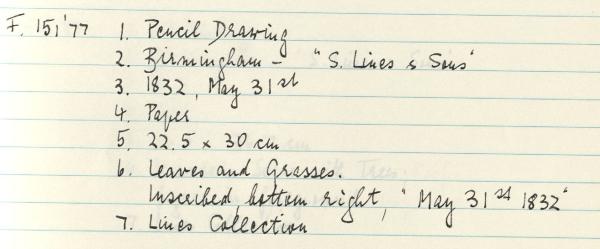 F. 151'77 1. Pencil Drawing
2. Birmingham - "S. Lines & Sons"
3. 1832, May 31st
4. Paper
5. 22.5 x 30 cm
6. Leaves and Grasses.
Inscribed, bottom right, "May 31st 1832"
7. Lines Collection